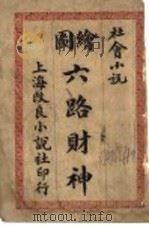 社會小說
繪圖
六路財神
上海改良小說社印行